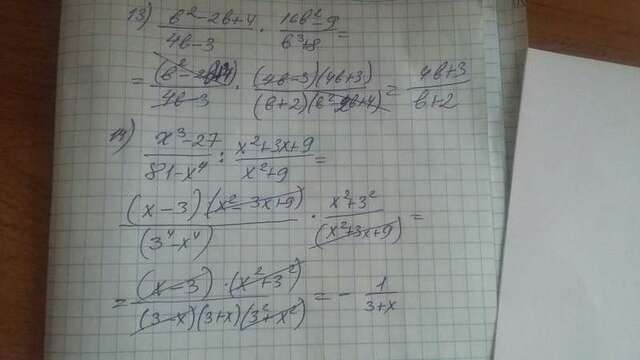 13) (b²-2b+4)/(4b-3) · (16b²-9)/(b³+8) =
= (b²-2b+4)/(4b-3) · ((4b-3)(4b+3))/((b+2)(b²-2b+4)) = (4b+3)/(b+2)
14) (x³-27)/(81-x⁴) : (x²+3x+9)/(x²+9) =
((x-3)(x²-3x+9))/((3⁴-x⁴)) · (x²+3²)/((x²+3x+9)) =
= ((x-3)·(x²+3²))/((3-x)(3+x)(3²+x²)) = - 1/(3+x)